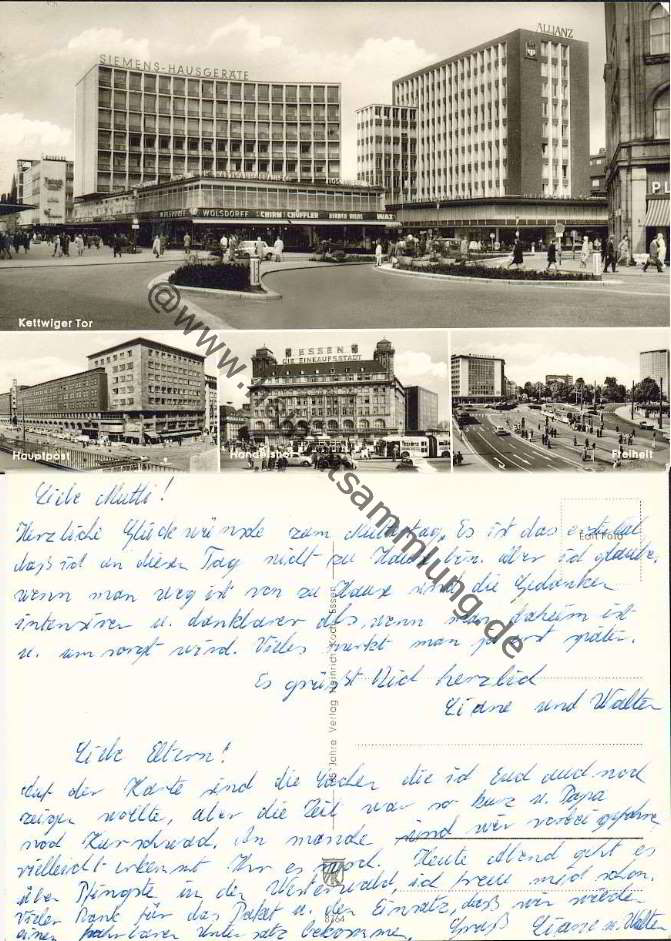 SIEMENS-HAUSGERÄTE
ALLIANZ
WOLSDORFF
WAZ
P
Kettwiger Tor
ESSEN
DIE EINKAUFSSTADT
Hauptpost
Handelshof
Freiheit
Liebe Mutti!
Herzliche Glückwünsche zum Muttertag. Es ist das erste Mal
daß ich an diesem Tag nicht zu Hause bin. aber ich glaube,
wenn man weg ist von zu Hause sind die Gedanken
intensiver u. dankbarer als, wenn man daheim ist
u. umsorgt wird. Vieles merkt man ja erst später.
Es grüßt Dich herzlich
Liane und Walter
Liebe Eltern!
Auf der Karte sind die Sachen die ich Euch auch noch
zeigen wollte, aber die Zeit war so kurz u. Papa
noch An manche sind wir vorbei gefahren
vielleicht erkennt Ihr es noch. Heute Abend geht es
über Pfingste in den Westerwald, ich freue mich schon.
Vielen Dank für das Paket u. den Einsatz, daß wir wieder
einen fahrbaren Untersatz bekommen. Gruß Liane u. Walter
Echt Foto
Jahre Verlag Heinrich Essen
8364
@www.
sammlung.de